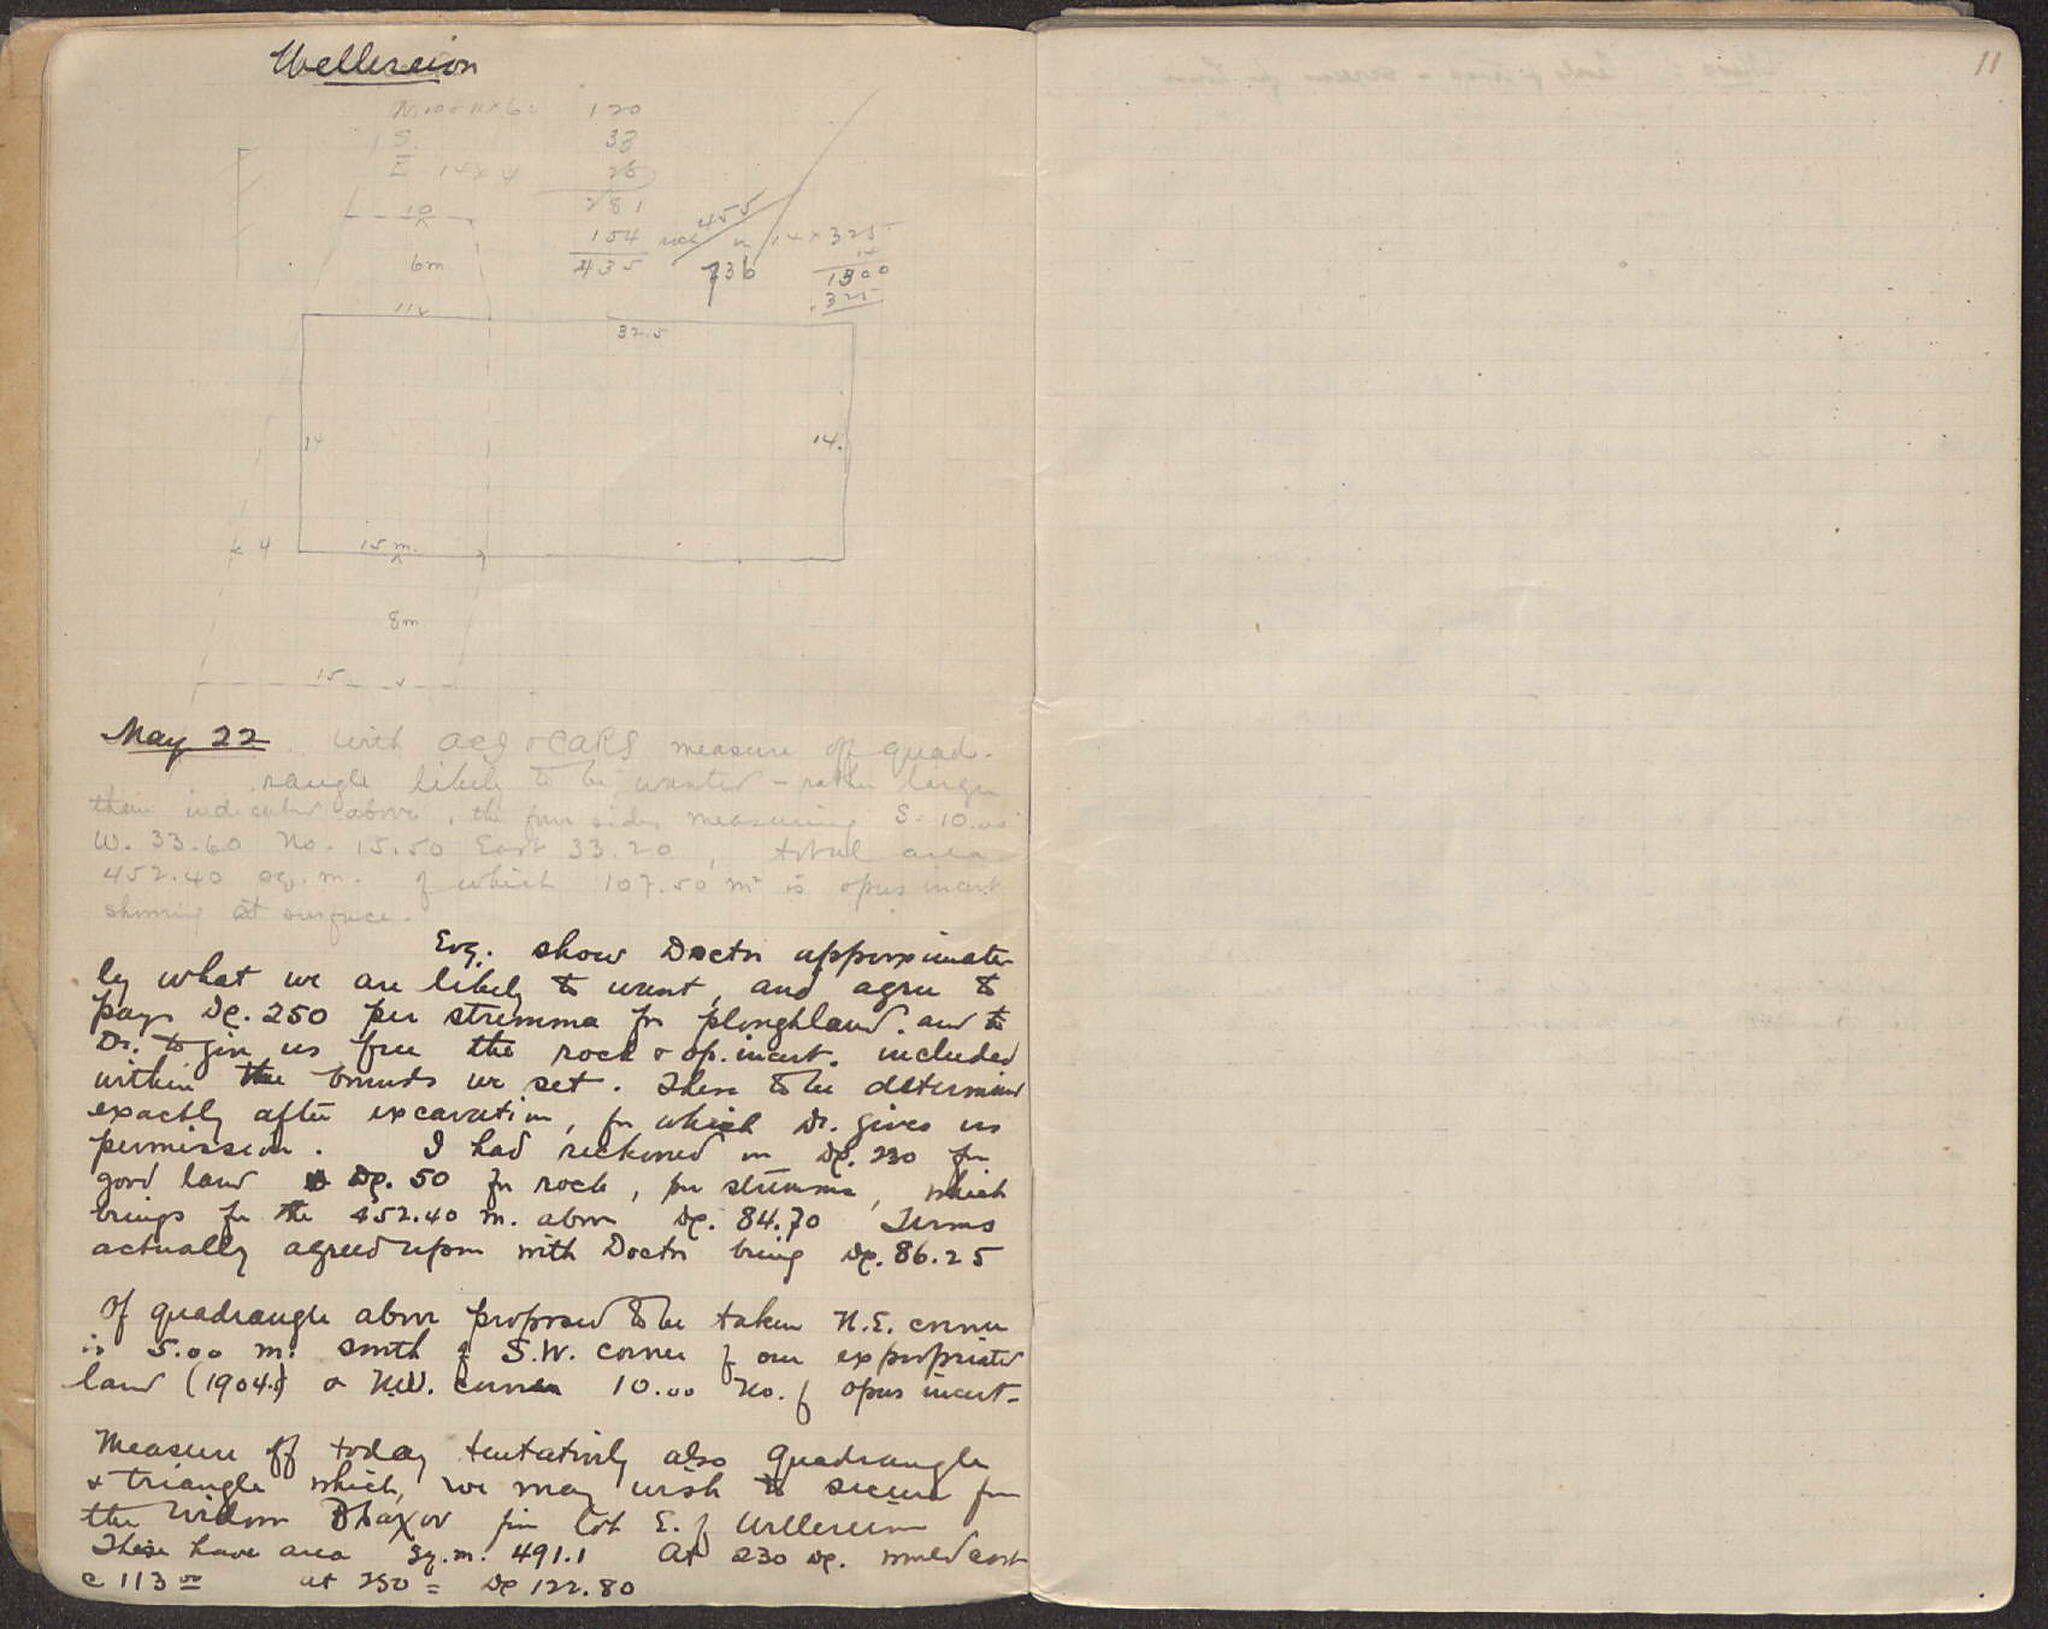 Wellereion
11
120
S. 38
E 14 x 4
10 281
154 rock 455 in 14 x 325
6m 435 736 1300
325
11
32.5
14 14.
4 15 m.
8m
15
May 22. With ACJ & CARS measure off quad-
rangle likely to be wanted - rather larger
than indicated above, the four sides measuring S. 10.00
W. 33.60 No. 15.50 East 33.20, total area
452.40 sq. m. of which 107.50 m² is opus incert
showing at surface.
Evg. show Doctor approximate
ly what we are likely to want, and agree to
pay Dr. 250 per stremma for ploughland. and the
Dr. to give us free the rock & op. incert. included
within the bounds we set. These to be determined
exactly after excavation, for which Dr. gives us
permission. I had reckoned on Dr. 230 for
good land & Dr. 50 for rock, per stremma, which
brings for the 452.40 m. above Dr. 84.70 Terms
actually agreed upon with Doctor being Dr. 86.25
Of quadrangle above proposed to be taken N.E. corner
is 5.00 m. south of S.W. corner of our expropriated
land (1904.) & N.W. corner 10.00 No. of opus incert-
Measure off today tentatively also quadrangle
& triangle which, we may wish to secure from
the widow for lot E. of Wellereion
These have area Sq. m. 491.1 At 230 Dr. would cost
c 113 00 at 250 = Dr 122.80